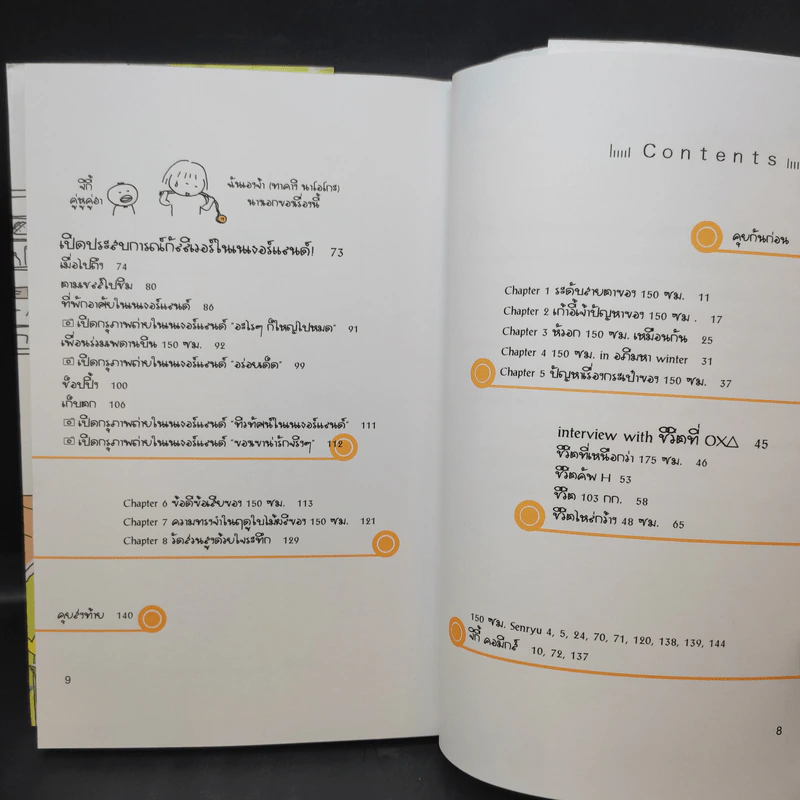 Contents
คุยกันก่อน
Chapter 1 ระดับสายตาของ 150 ซม. 11
Chapter 2 เก้าอี้เจ้าปัญหาของ 150 ซม. 17
Chapter 3 หัวอก 150 ซม. เหมือนกัน 25
Chapter 4 150 ซม. in อภิมหา winter 31
Chapter 5 ปัญหาเรื่องกระเป๋าของ 150 ซม. 37
interview with ชีวิตที่ OX△ 45
ชีวิตที่เหนือกว่า 175 ซม. 46
ชีวิตคัพ H 53
ชีวิต 103 กก. 58
ชีวิตไหล่กว้าง 48 ซม. 65
150 ซม. Senryu 4, 5, 24, 70, 71, 120, 138, 139, 144
จิกี้ คอมิกส์ 10, 72, 137
8
จิกี้
คู่หูคู่ฮา
ฉันเองจ้า (ทาคางิ นาโอโกะ)
นางเอกของเรื่องนี้
เปิดประสบการณ์กัลลิเวอร์ในเนเธอร์แลนด์! 73
เมื่อไปถึง 74
ตามเชลล์ไปชิม 80
ที่พักอาศัยในเนเธอร์แลนด์ 86
เปิดกรุภาพถ่ายในเนเธอร์แลนด์ "อะไรๆ ก็ใหญ่ไปหมด" 91
เพื่อนร่วมเพดานบิน 150 ซม. 92
เปิดกรุภาพถ่ายในเนเธอร์แลนด์ "อร่อยเด็ด" 99
ช็อปปิ้ง 100
เก็บตก 106
เปิดกรุภาพถ่ายในเนเธอร์แลนด์ "ทิวทัศน์ในเนเธอร์แลนด์" 111
เปิดกรุภาพถ่ายในเนเธอร์แลนด์ "ของเขาน่ารักจริงๆ" 112
Chapter 6 ข้อดีข้อเสียของ 150 ซม. 113
Chapter 7 ความทรงจำในฤดูใบไม้ผลิของ 150 ซม. 121
Chapter 8 วัดส่วนสูงด้วยใจระทึก 129
คุยส่งท้าย 140
9